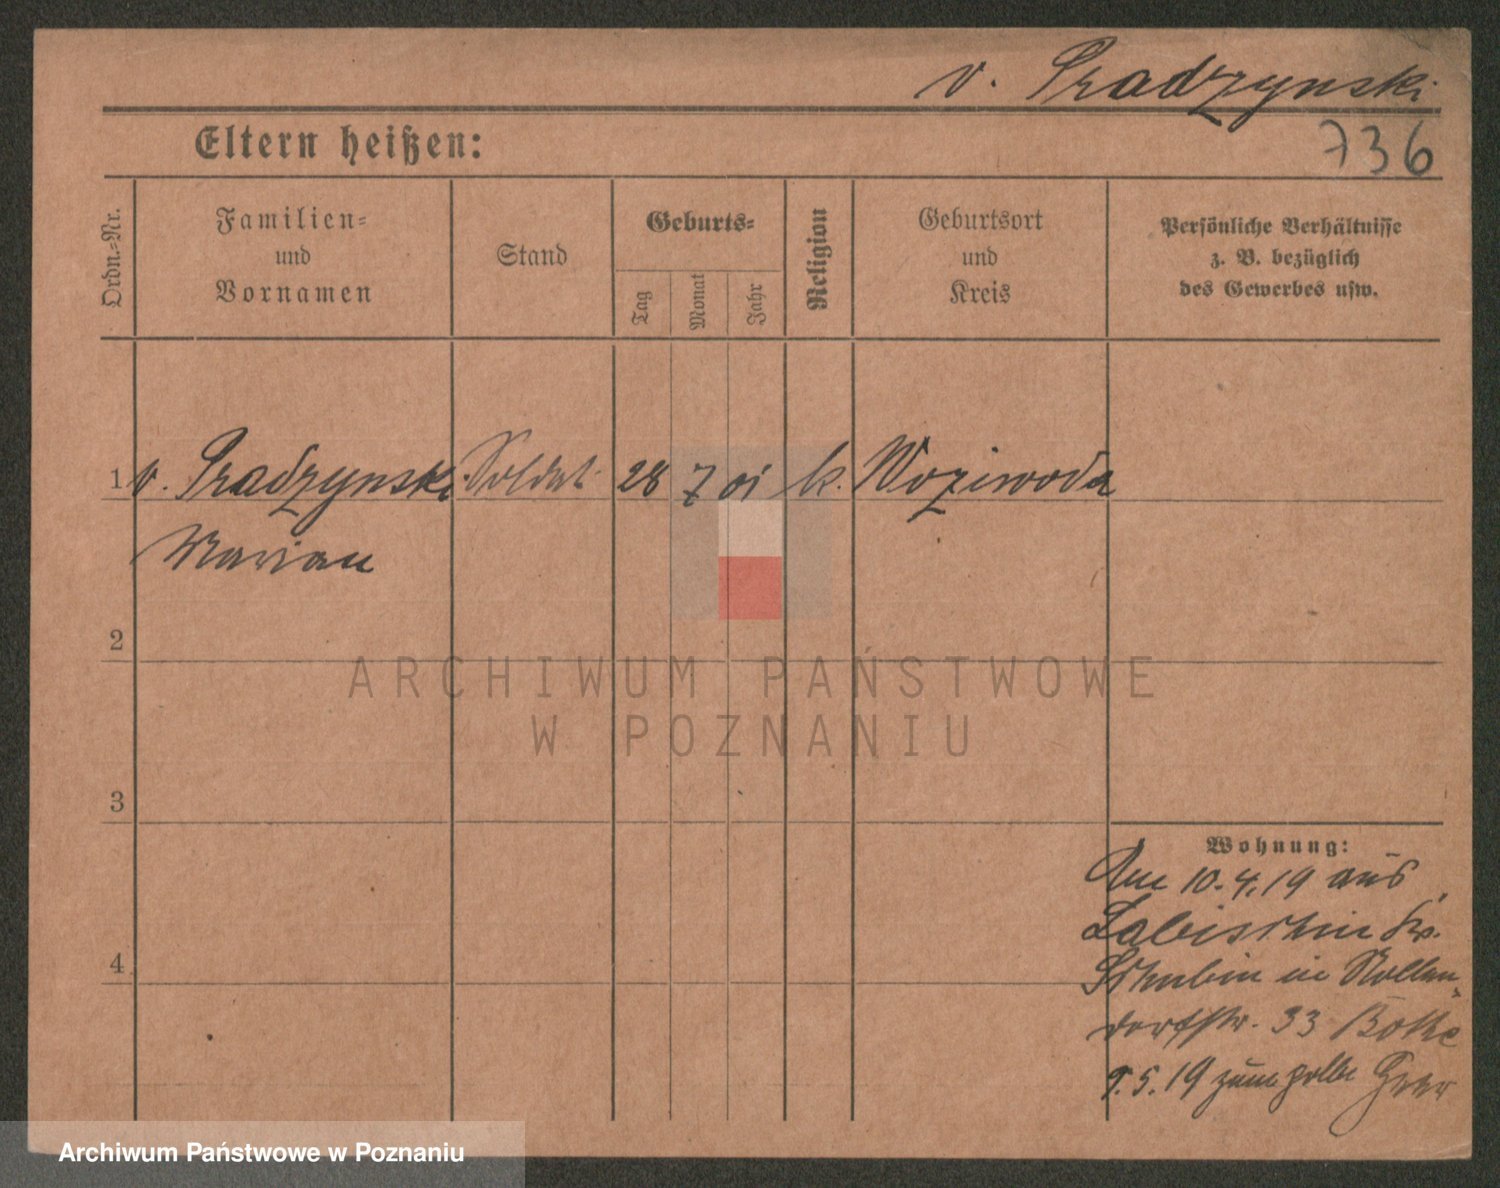 v. Pradzynski
Eltern heißen:
736
Ordn.=Nr.
Familien=
und
Vornamen
Stand
Geburts=
Tag
Monat
Jahr
Religion
Geburtsort
und
Kreis
Persönliche Verhältnisse
z. B. bezüglich
des Gewerbes usw.
1 v. Pradzynski Soldat 28 7 01 k. Woziwoda
Marian
2
3
4
Wohnung:
Am 10.4.19 aus
Labischin Kr.
Schubin in Nollen=
dorfstr. 33 Bothe
9.5.19 zum
ARCHIWUM PAŃSTWOWE
W POZNANIU
Archiwum Państwowe w Poznaniu